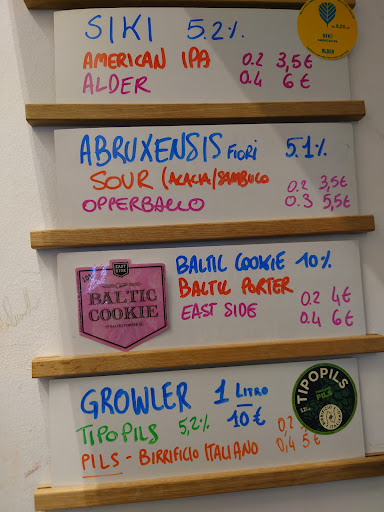 SIKI 5.2%
AMERICAN IPA 0.2 3,5€
ALDER 0.4 6€
SIKI
ALDER
ABRUXENSIS FIORI 5.1%
SOUR (ACACIA/SAMBUCO 0.2 3,5€
OPPERBACCO 0.3 5,5€
EAST SIDE
BALTIC
COOKIE
BALTIC COOKIE 10%
BALTIC PORTER 0.2 4€
EAST SIDE 0.4 6€
GROWLER 1 LITRO
10€
TIPOPILS 5,2% 0,2
PILS - BIRRIFICIO ITALIANO 0,4 5€
TIPOPILS
PILS